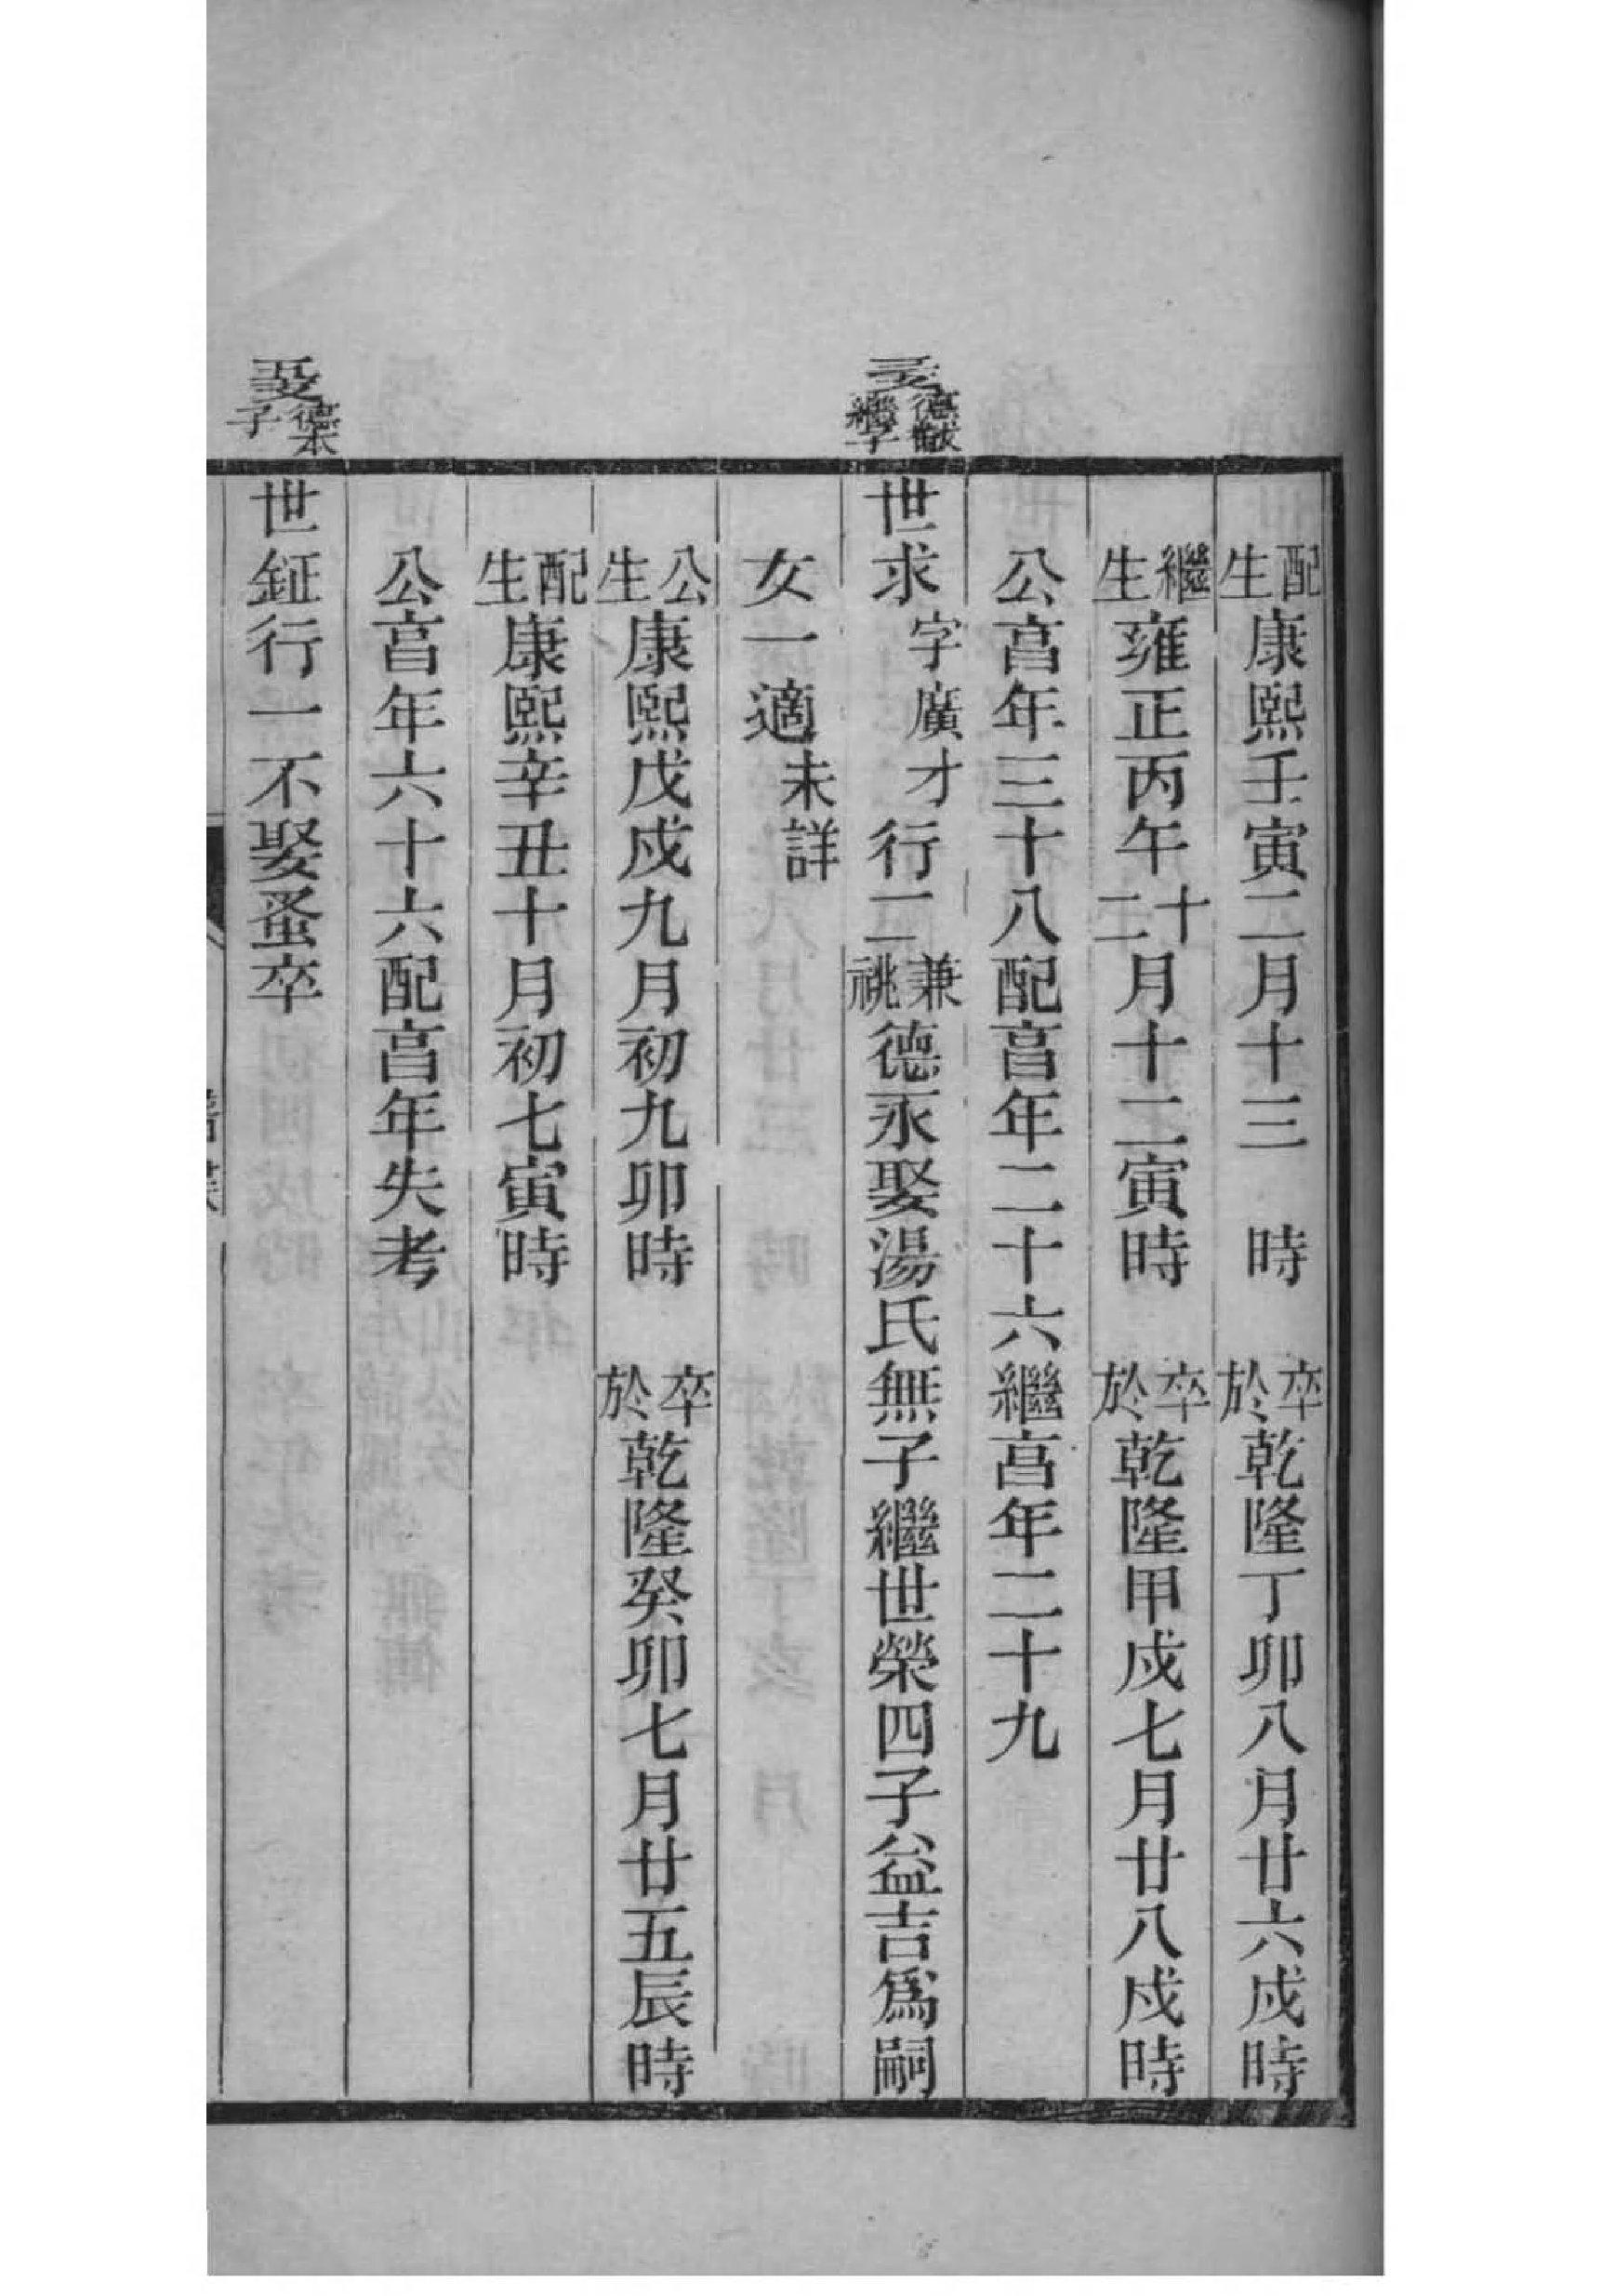 配生康熙壬寅二月十三　時　卒於乾隆丁卯八月廿六戌時
繼生雍正丙午十二月十二寅時　卒於乾隆甲戌七月廿八戌時
公亯年三十八配亯年二十六繼亯年二十九
德猷繼子
世求字廣才行二兼祧德永娶湯氏無子繼世榮四子益吉爲嗣
女一適未詳
公生康熙戊戌九月初九卯時　卒於乾隆癸卯七月廿五辰時
配生康熙辛丑十月初七寅時
公亯年六十六配亯年失考
德本子
世鉦行一不娶蚤卒